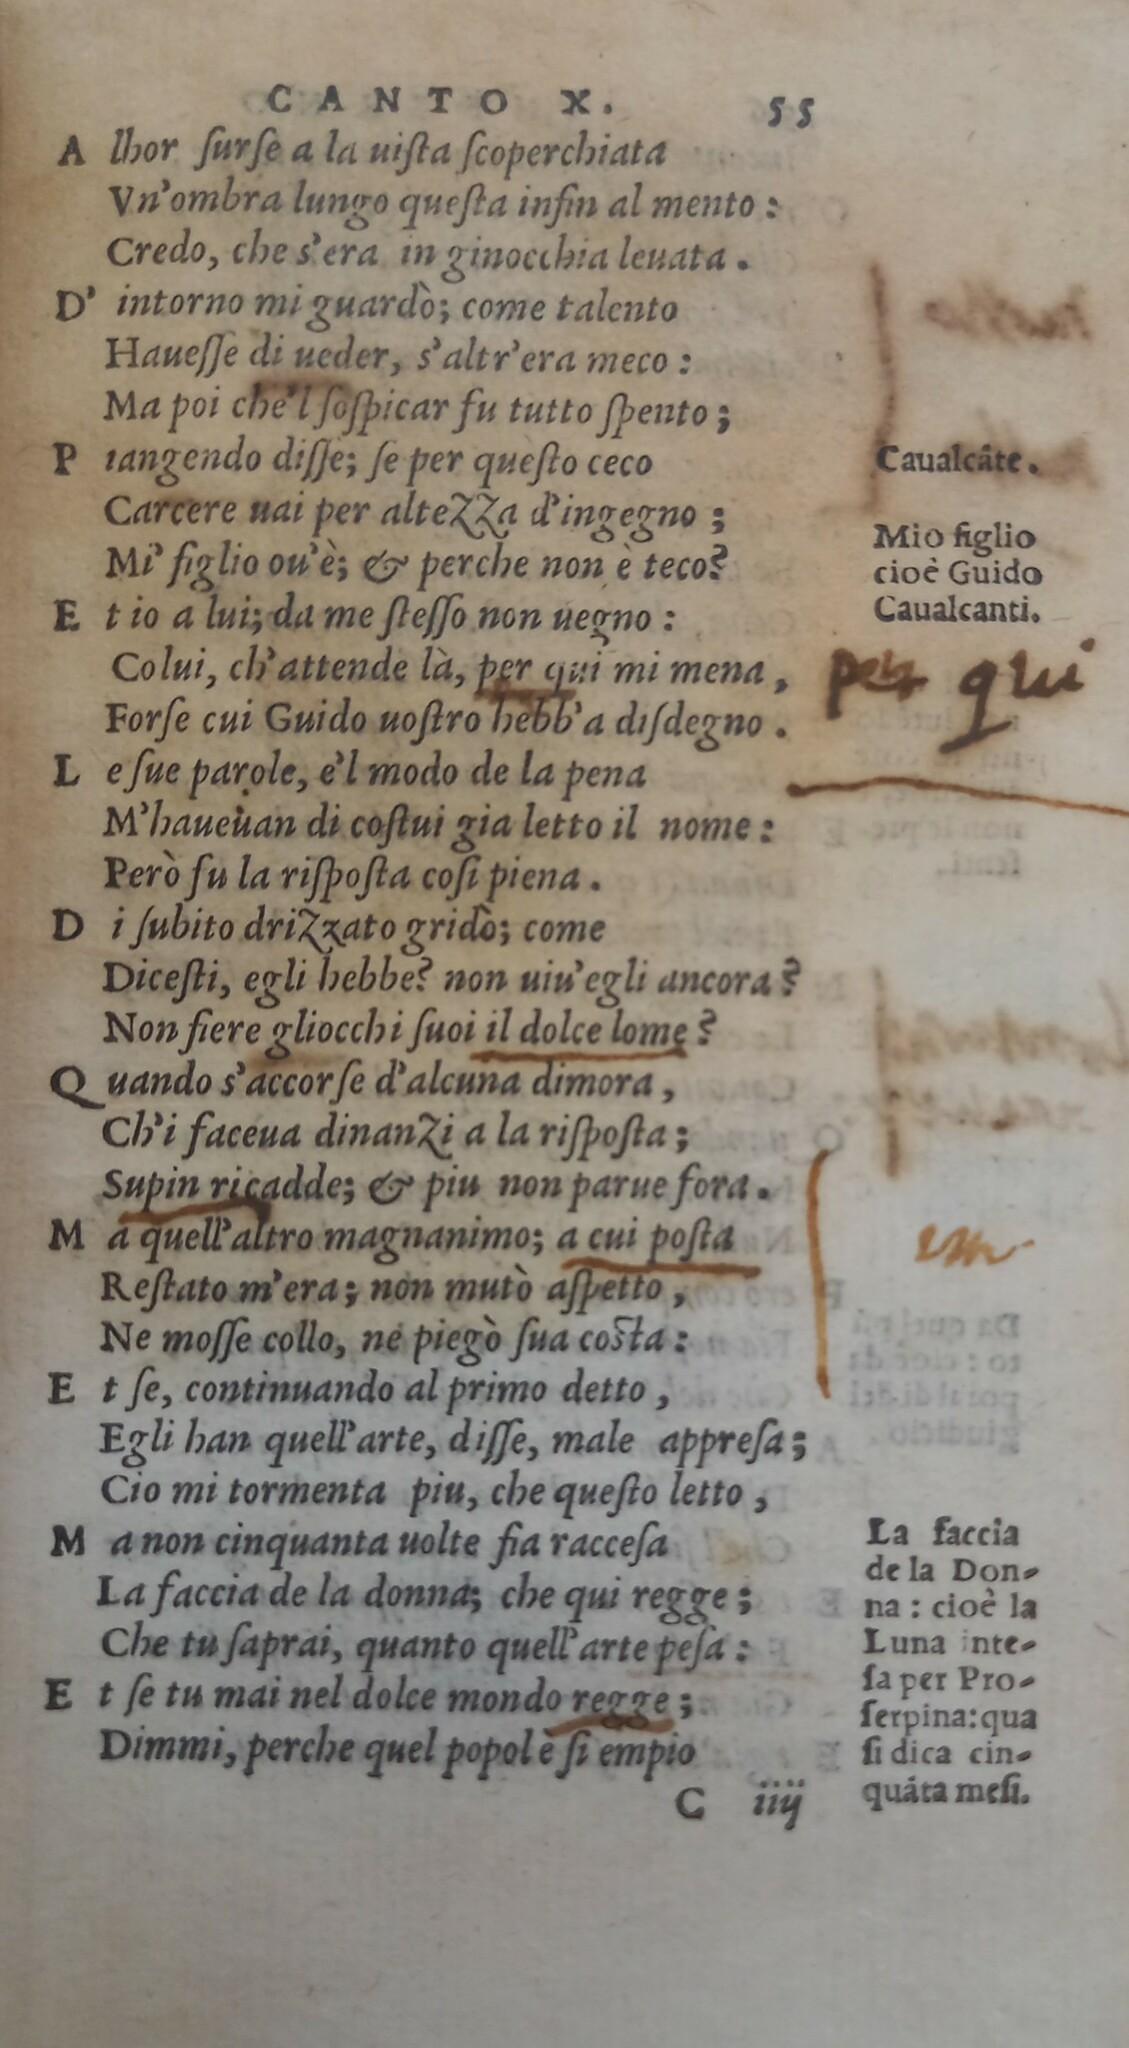 CANTO X. 55
A lhor ſurſe a la uiſta ſcoperchiata
Vn'ombra lungo queſta infin al mento:
Credo, che s'era in ginocchia leuata.
D' intorno mi guardò; come talento
Haueſſe di ueder, s'altr'era meco:
Ma poi che'l ſoſpicar fu tutto ſpento;
P iangendo diſſe; ſe per queſto ceco
Carcere uai per altezza d'ingegno;
Mi' figlio ou'è; & perche non è teco?
E t io a lui; da me ſteſſo non uegno:
Colui, ch'attende là, per qui mi mena,
Forſe cui Guido uoſtro hebb'a diſdegno.
L e ſue parole, e'l modo de la pena
M'haueuan di coſtui gia letto il nome:
Però fu la riſpoſta coſi piena.
D i ſubito drizzato gridò; come
Diceſti, egli hebbe? non uiu'egli ancora?
Non fiere gliocchi ſuoi il dolce lome?
Q uando s'accorſe d'alcuna dimora,
Ch'i faceua dinanzi a la riſpoſta;
Supin ricadde; & piu non parue fora.
M a quell'altro magnanimo; a cui poſta
Reſtato m'era; non mutò aſpetto,
Ne moſſe collo, ne piegò ſua coſta:
E t ſe, continuando al primo detto,
Egli han quell'arte, diſſe, male appreſa;
Cio mi tormenta piu, che queſto letto,
M a non cinquanta uolte fia racceſa
La faccia de la donna; che qui regge;
Che tu ſaprai, quanto quell'arte peſa:
E t ſe tu mai nel dolce mondo regge;
Dimmi, perche quel popol è ſi empio
C iiij
Caualcâte.
Mio figlio
cioè Guido
Caualcanti.
per qui
La faccia
de la Don-
na: cioè la
Luna inte-
ſa per Pro-
ſerpina: qua
ſi dica cin-
quâta meſi.